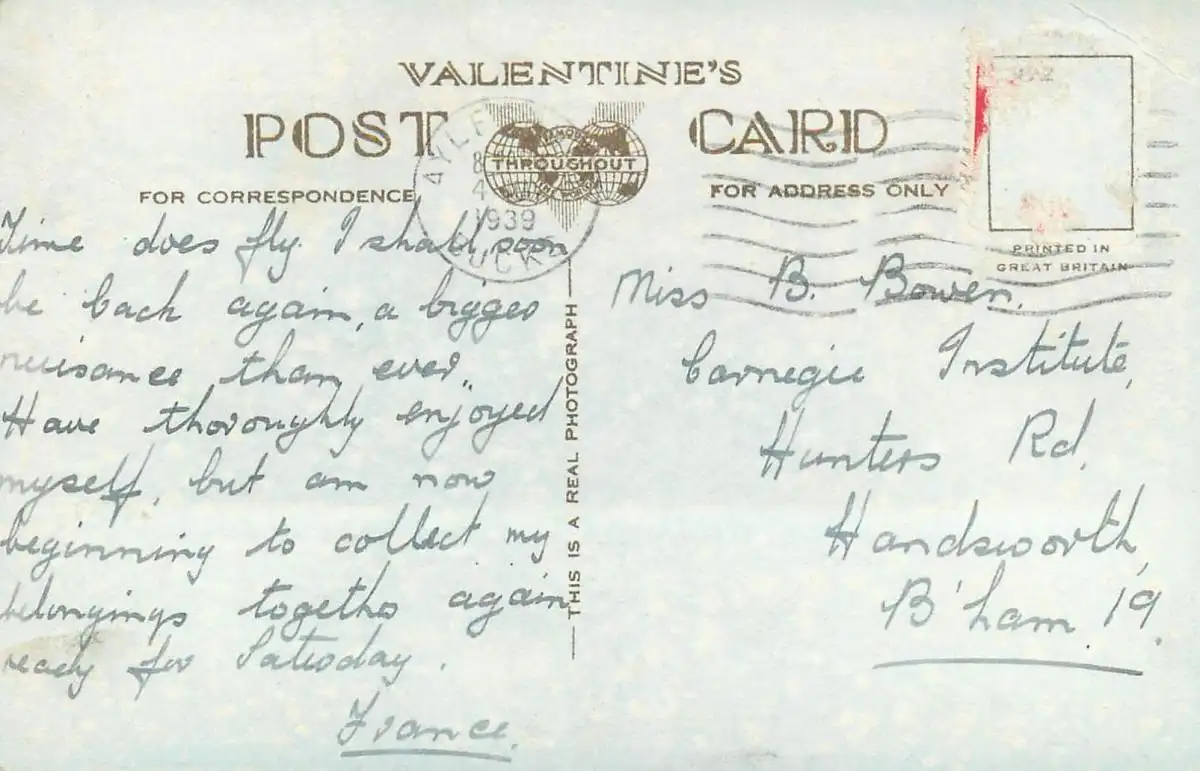 VALENTINE'S
POST CARD
THROUGHOUT
FOR CORRESPONDENCE
FOR ADDRESS ONLY
1939
PRINTED IN
GREAT BRITAIN
Time does fly. I shall soon
be back again, a bigger
nuisance than ever.
Have thoroughly enjoyed
myself, but am now
beginning to collect my
belongings together again
ready for Saturday.
France.
THIS IS A REAL PHOTOGRAPH
Miss B. Bowen.
Carnegie Institute,
Hunters Rd,
Handsworth,
B'ham. 19.